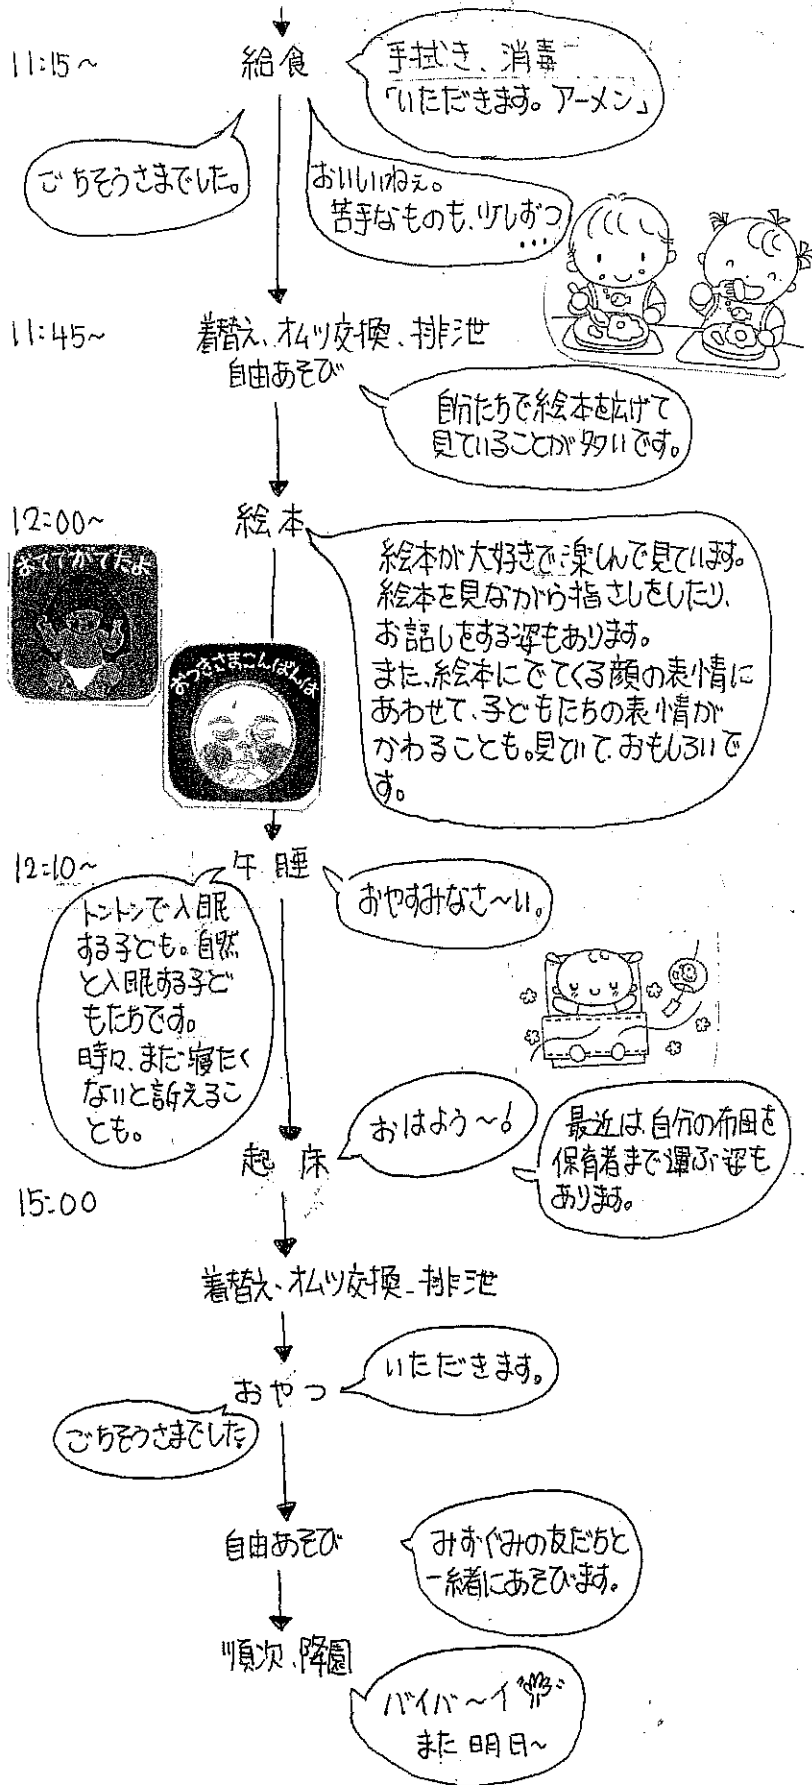 11:15～
給食
手拭き、消毒
「いただきます。アーメン」
ごちそうさまでした。
おいしいねぇ。
苦手なものも、少しずつ
・・・・
11:45～
着替え、オムツ交換、排泄
自由あそび
自分たちで絵本を広げて
見ていることが多いです。
12:00～
絵本
おててがでたよ
おつきさまこんばんは
絵本が大好きで楽しんで見ています。
絵本を見ながら指さしをしたり、
お話しをする姿もあります。
また、絵本にでてくる顔の表情に
あわせて、子どもたちの表情が
かわることも。見ていて、おもしろいで
す。
12:10～
午睡
おやすみなさ～い。
トントンで入眠
する子ども。自然
と入眠する子ど
もたちです。
時々、まだ寝たく
ないと訴えるこ
とも。
起床
おはよう～!
最近は自分の布団を
保育者まで運ぶ姿も
あります。
15:00
着替え、オムツ交換、排泄
おやつ
いただきます。
ごちそうさまでした。
自由あそび
みずぐみの友だちと
一緒にあそびます。
順次、降園
バイバ～イ
また明日～